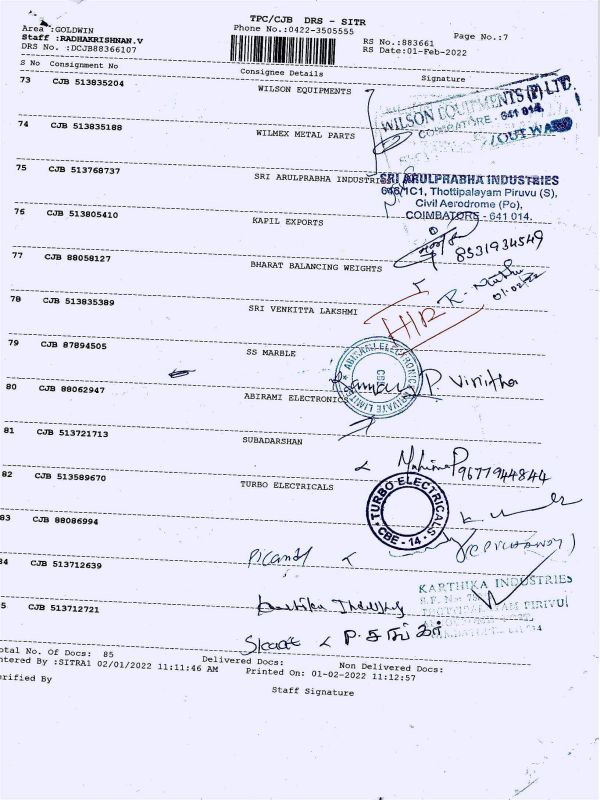 TPC/CJB DRS - SITR
Area :GOLDWIN
Phone No.:0422-3505555
Page No.:7
Staff :RADHAKRISHNAN.V
RS No.:883661
DRS No. :DCJB88366107
RS Date:01-Feb-2022
S No Consignment No Consignee Details Signature
73 CJB 513835204 WILSON EQUIPMENTS
WILSON EQUIPMENTS (P) LTD.
COIMBATORE - 641 014.
/OUTWARD
74 CJB 513835188 WILMEX METAL PARTS
75 CJB 513768737 SRI ARULPRABHA INDUSTRIES
SRI ARULPRABHA INDUSTRIES
646/1C1, Thottipalayam Piruvu (S),
Civil Aerodrome (Po),
COIMBATORE - 641 014.
76 CJB 513805410 KAPIL EXPORTS
8531934549
77 CJB 88058127 BHARAT BALANCING WEIGHTS
R. Muthu
01/02/22
78 CJB 513835389 SRI VENKITTA LAKSHMI
H/R
79 CJB 87894505 SS MARBLE
ABIRAMI ELECTRONICS PRIVATE LIMITED
CBE
P Vinitha
80 CJB 88062947 ABIRAMI ELECTRONICS
81 CJB 513721713 SUBADARSHAN
9677944844
82 CJB 513589670 TURBO ELECTRICALS
TURBO ELECTRICALS
CBE - 14
83 CJB 88086994
84 CJB 513712639
KARTHIKA INDUSTRIES
5 CJB 513712721
P. சங்கர்
otal No. Of Docs: 85
Delivered Docs:
Non Delivered Docs:
ntered By :SITRA1 02/01/2022 11:11:46 AM
Printed On: 01-02-2022 11:12:57
erified By
Staff Signature